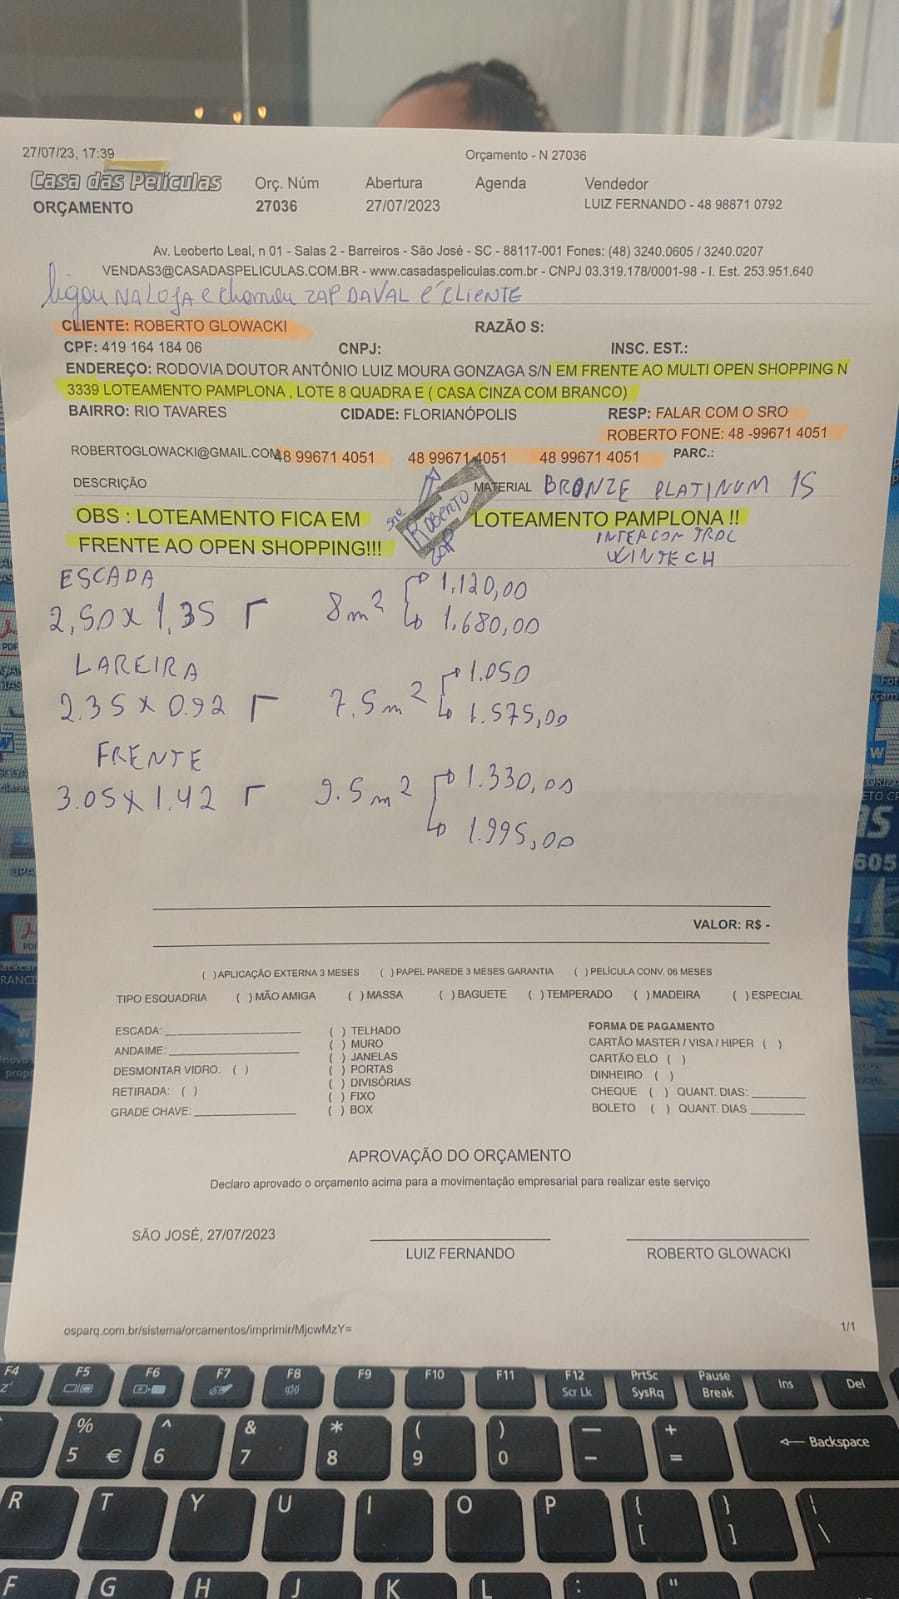 27/07/23, 17:39
Orçamento - N 27036
Casa das Películas
ORÇAMENTO
Orç. Núm
27036
Abertura
27/07/2023
Agenda
Vendedor
LUIZ FERNANDO - 48 98871 0792
Av. Leoberto Leal, n 01 - Salas 2 - Barreiros - São José - SC - 88117-001 Fones: (48) 3240.0605 / 3240.0207
VENDAS3@CASADASPELICULAS.COM.BR - www.casadaspeliculas.com.br - CNPJ 03.319.178/0001-98 - I. Est. 253.951.640
ligou NA LOJA e chamou ZAP DAVAL É CLIENTE
CLIENTE: ROBERTO GLOWACKI RAZÃO S:
CPF: 419 164 184 06 CNPJ: INSC. EST.:
ENDEREÇO: RODOVIA DOUTOR ANTÔNIO LUIZ MOURA GONZAGA S/N EM FRENTE AO MULTI OPEN SHOPPING N
3339 LOTEAMENTO PAMPLONA , LOTE 8 QUADRA E ( CASA CINZA COM BRANCO)
BAIRRO: RIO TAVARES CIDADE: FLORIANÓPOLIS RESP: FALAR COM O SRO
ROBERTO FONE: 48 -99671 4051
ROBERTOGLOWACKI@GMAIL.COM 48 99671 4051 48 99671 4051 48 99671 4051 PARC.:
DESCRIÇÃO MATERIAL BRONZE PLATINUM 15
sro ROBERTO
ZAP
OBS : LOTEAMENTO FICA EM LOTEAMENTO PAMPLONA !!
FRENTE AO OPEN SHOPPING!!! INTERCONTROL
WINTECH
ESCADA
2,50 x 1,35 8m² 1.120,00
1.680,00
LAREIRA
2.35 x 0.92 7.5m² 1.050
1.575,00
FRENTE
3.05 x 1.42 9.5m² 1.330,00
1.995,00
VALOR: R$ -
( )APLICAÇÃO EXTERNA 3 MESES ( )PAPEL PAREDE 3 MESES GARANTIA ( )PELÍCULA CONV. 06 MESES
TIPO ESQUADRIA ( )MÃO AMIGA ( )MASSA ( )BAGUETE ( )TEMPERADO ( )MADEIRA ( )ESPECIAL
ESCADA:
ANDAIME:
DESMONTAR VIDRO: ( )
RETIRADA: ( )
GRADE CHAVE:
( ) TELHADO
( ) MURO
( ) JANELAS
( ) PORTAS
( ) DIVISÓRIAS
( ) FIXO
( ) BOX
FORMA DE PAGAMENTO
CARTÃO MASTER / VISA / HIPER ( )
CARTÃO ELO ( )
DINHEIRO ( )
CHEQUE ( ) QUANT. DIAS:
BOLETO ( ) QUANT. DIAS
APROVAÇÃO DO ORÇAMENTO
Declaro aprovado o orçamento acima para a movimentação empresarial para realizar este serviço
SÃO JOSÉ, 27/07/2023
LUIZ FERNANDO
ROBERTO GLOWACKI
osparq.com.br/sistema/orcamentos/imprimir/MjcwMzY= 1/1
605
F4 F5 F6 F7 F8 F9 F10 F11 F12 Scr Lk PrtSc SysRq Pause Break Ins Del
% 5 € ^ 6 & 7 * 8 ( 9 ) 0 — - + = Backspace
R T Y U I O P { [ } ] | \
F G H J K L : "